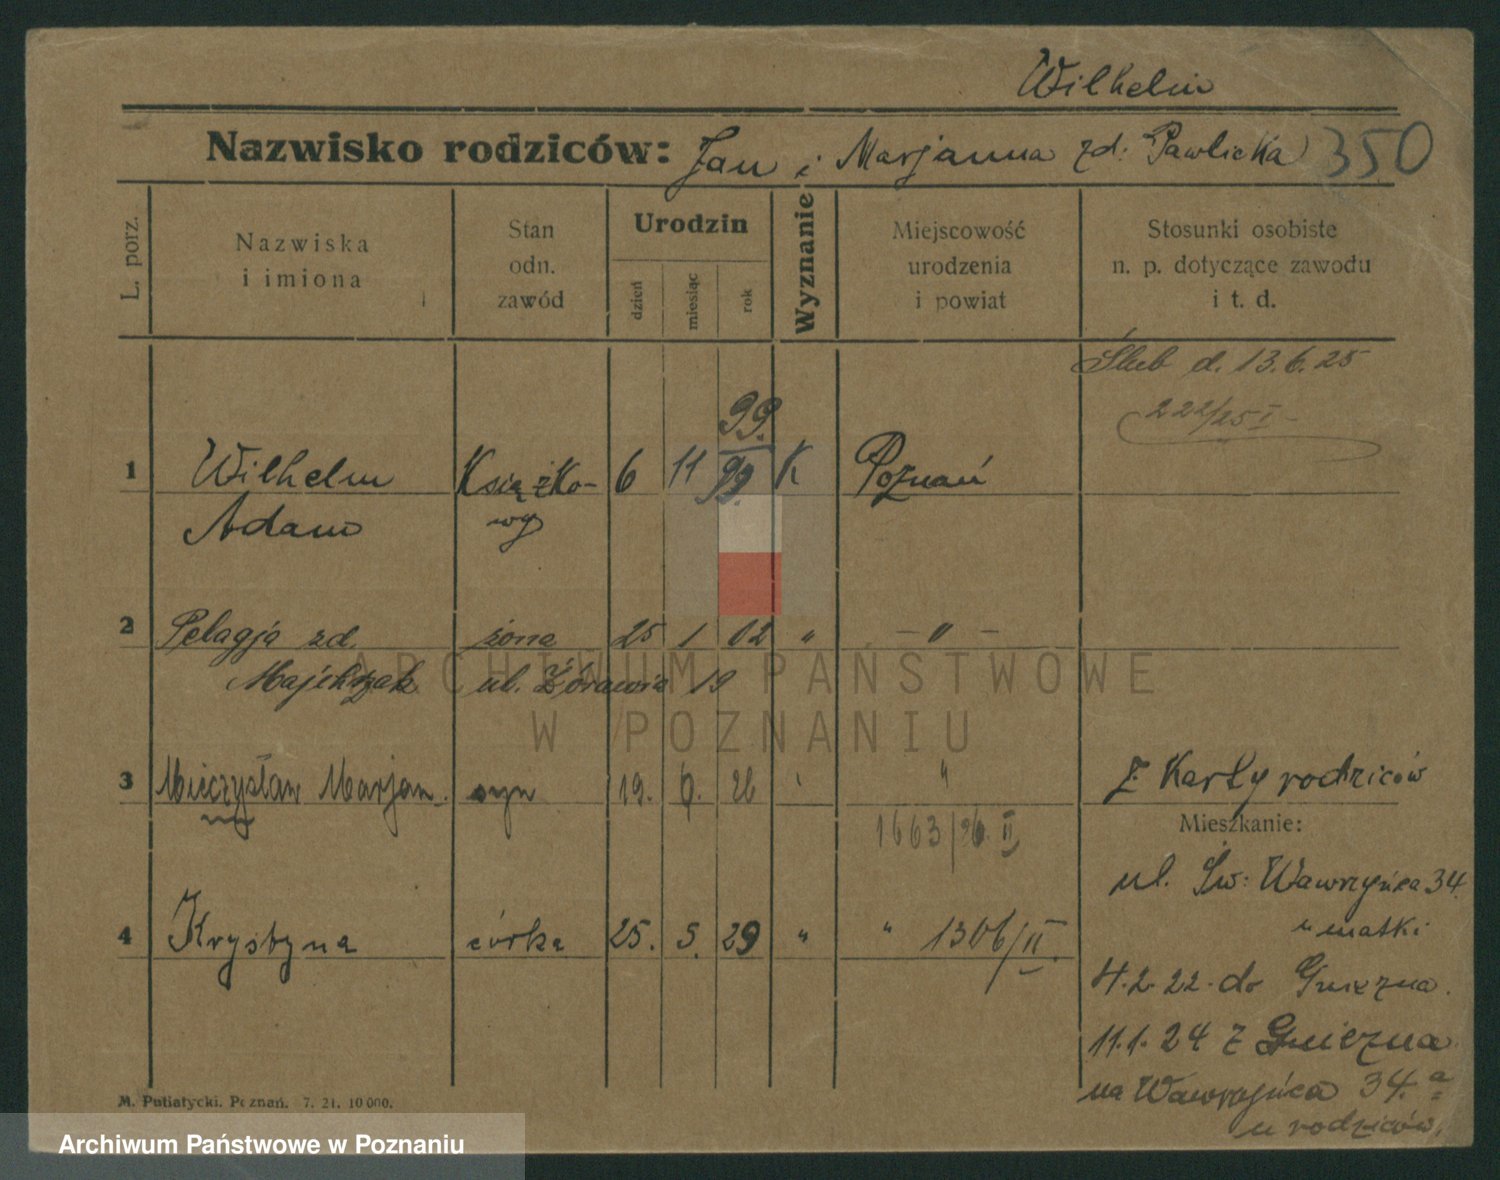 Wilhelm
Nazwisko rodziców: Jan i Marjanna zd: Pawlicka 350
L. porz.
Nazwiska i imiona
Stan odn. zawód
Urodzin
dzień
miesiąc
rok
Wyznanie
Miejscowość urodzenia i powiat
Stosunki osobiste n. p. dotyczące zawodu i t. d.
Ślub d. 13.6.25
222/25 I
99.
1 Wilhelm Książko- 6 11 99. K Poznań
Adam wy
2 Pelagja zd. żona 25 1 02 " — " —
Majchrzak ul. Żórawia 19
3 Mieczysław Marjan syn 19. 6. 26 " Z Karty rodziców
1663/26. II
Mieszkanie:
ul. Św: Wawrzyńca 34.
u matki
4 Krystyna córka 25. 5. 29 " " 1306/II.
4.2.22. do Gniezna.
11.1.24 z Gniezna
na Wawrzyńca 34.a
u rodziców.
M. Putiatycki. Poznań. 7. 21. 10 000.
ARCHIWUM PAŃSTWOWE
W POZNANIU
Archiwum Państwowe w Poznaniu